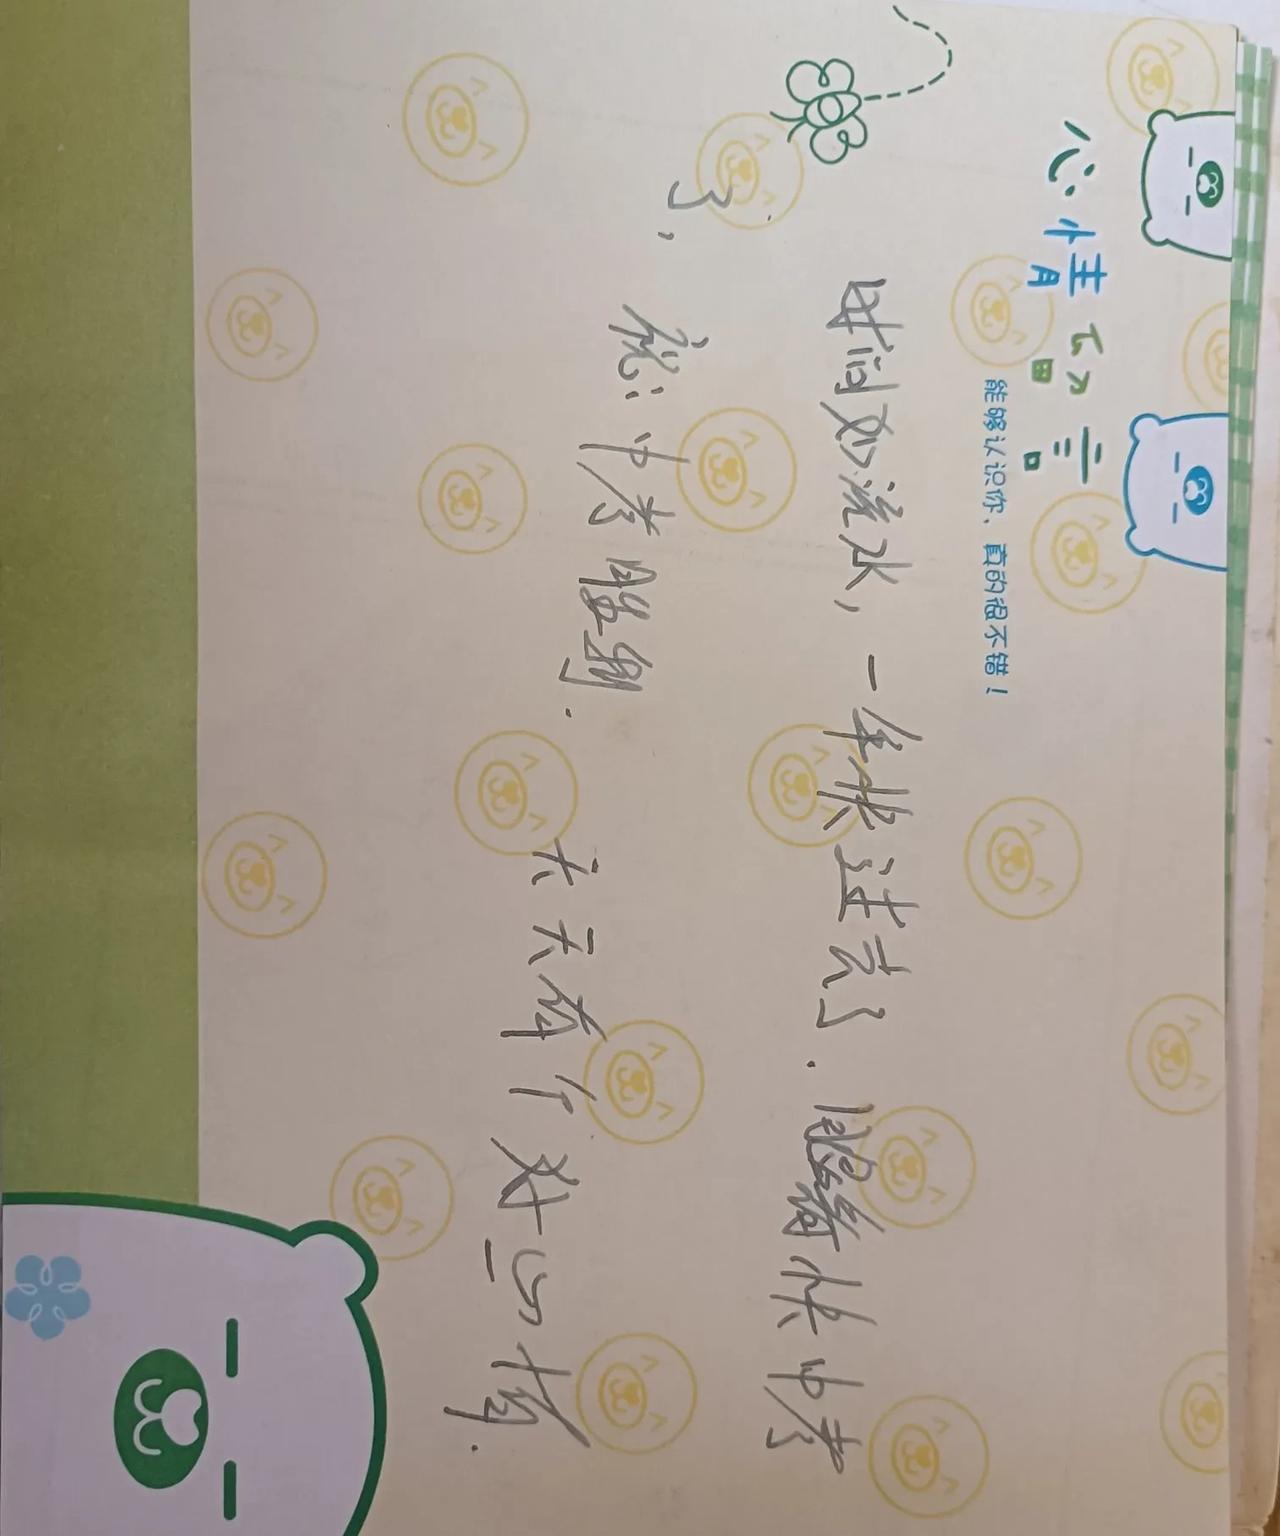 心情留言
能够认识你、真的很不错!
时间如流水,一年快过去了.快中考
了,
祝:中考胜利.
天天有个好心情.